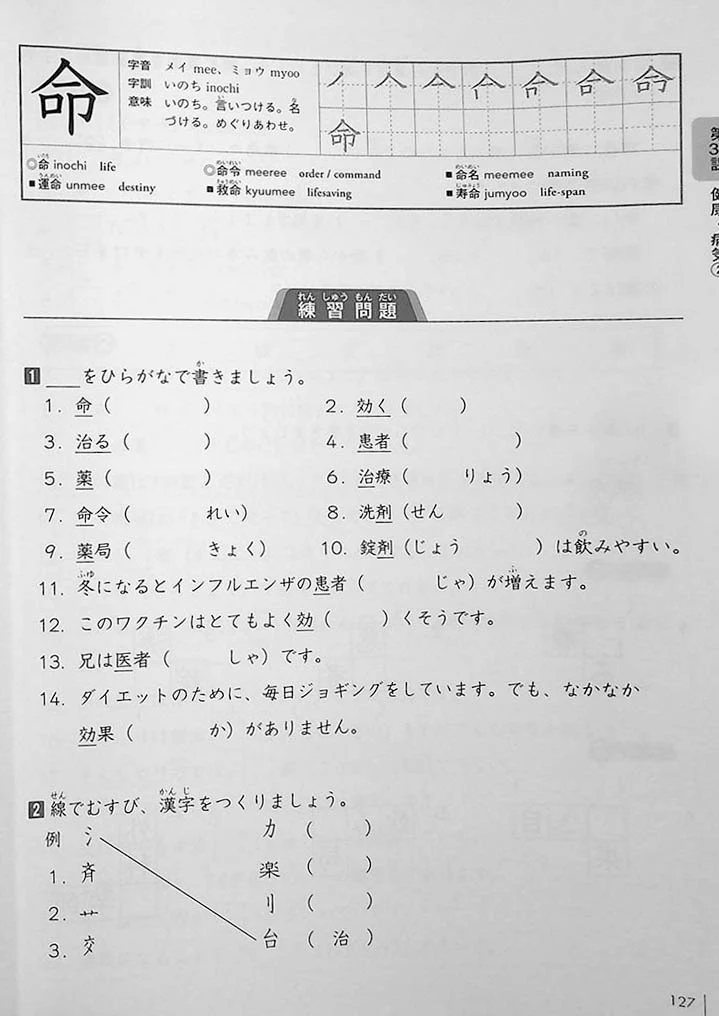 命
字音 メイ mee、ミョウ myoo
字訓 いのち inochi
意味 いのち。言いつける。名
づける。めぐりあわせ。
命
◎命 inochi life
◎命令 meeree order / command
■命名 meemee naming
■運命 unmee destiny
■救命 kyuumee lifesaving
■寿命 jumyoo life-span
練習問題
1 ___をひらがなで書きましょう。
1. 命（ ） 2. 効く（ ）
3. 治る（ ） 4. 患者（ ）
5. 薬（ ） 6. 治療（ りょう）
7. 命令（ れい） 8. 洗剤（せん ）
9. 薬局（ きょく） 10. 錠剤（じょう ）は飲みやすい。
11. 冬になるとインフルエンザの患者（ じゃ）が増えます。
12. このワクチンはとてもよく効（ ）くそうです。
13. 兄は医者（ しゃ）です。
14. ダイエットのために、毎日ジョギングをしています。でも、なかなか
効果（ か）がありません。
2 線でむすび、漢字をつくりましょう。
例 氵 力（ ）
1. 斉 楽（ ）
2. 艹 刂（ ）
3. 交 台（ 治 ）
127